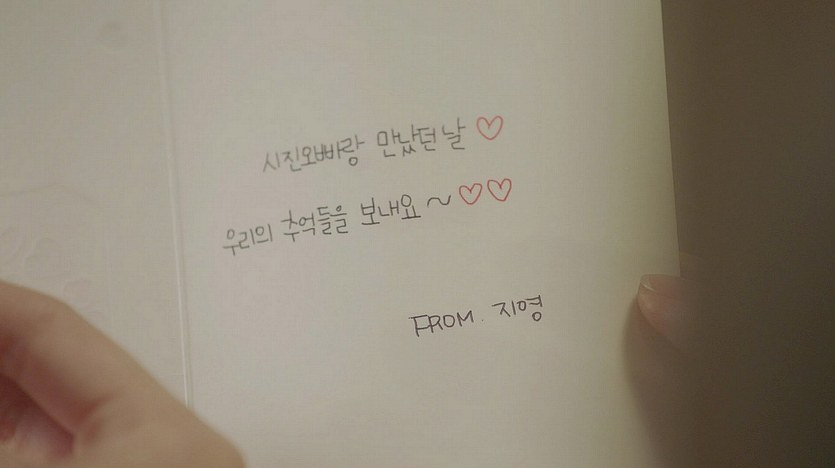 시진오빠랑 만났던 날 ♡
우리의 추억들을 보내요~♡♡
FROM. 지영